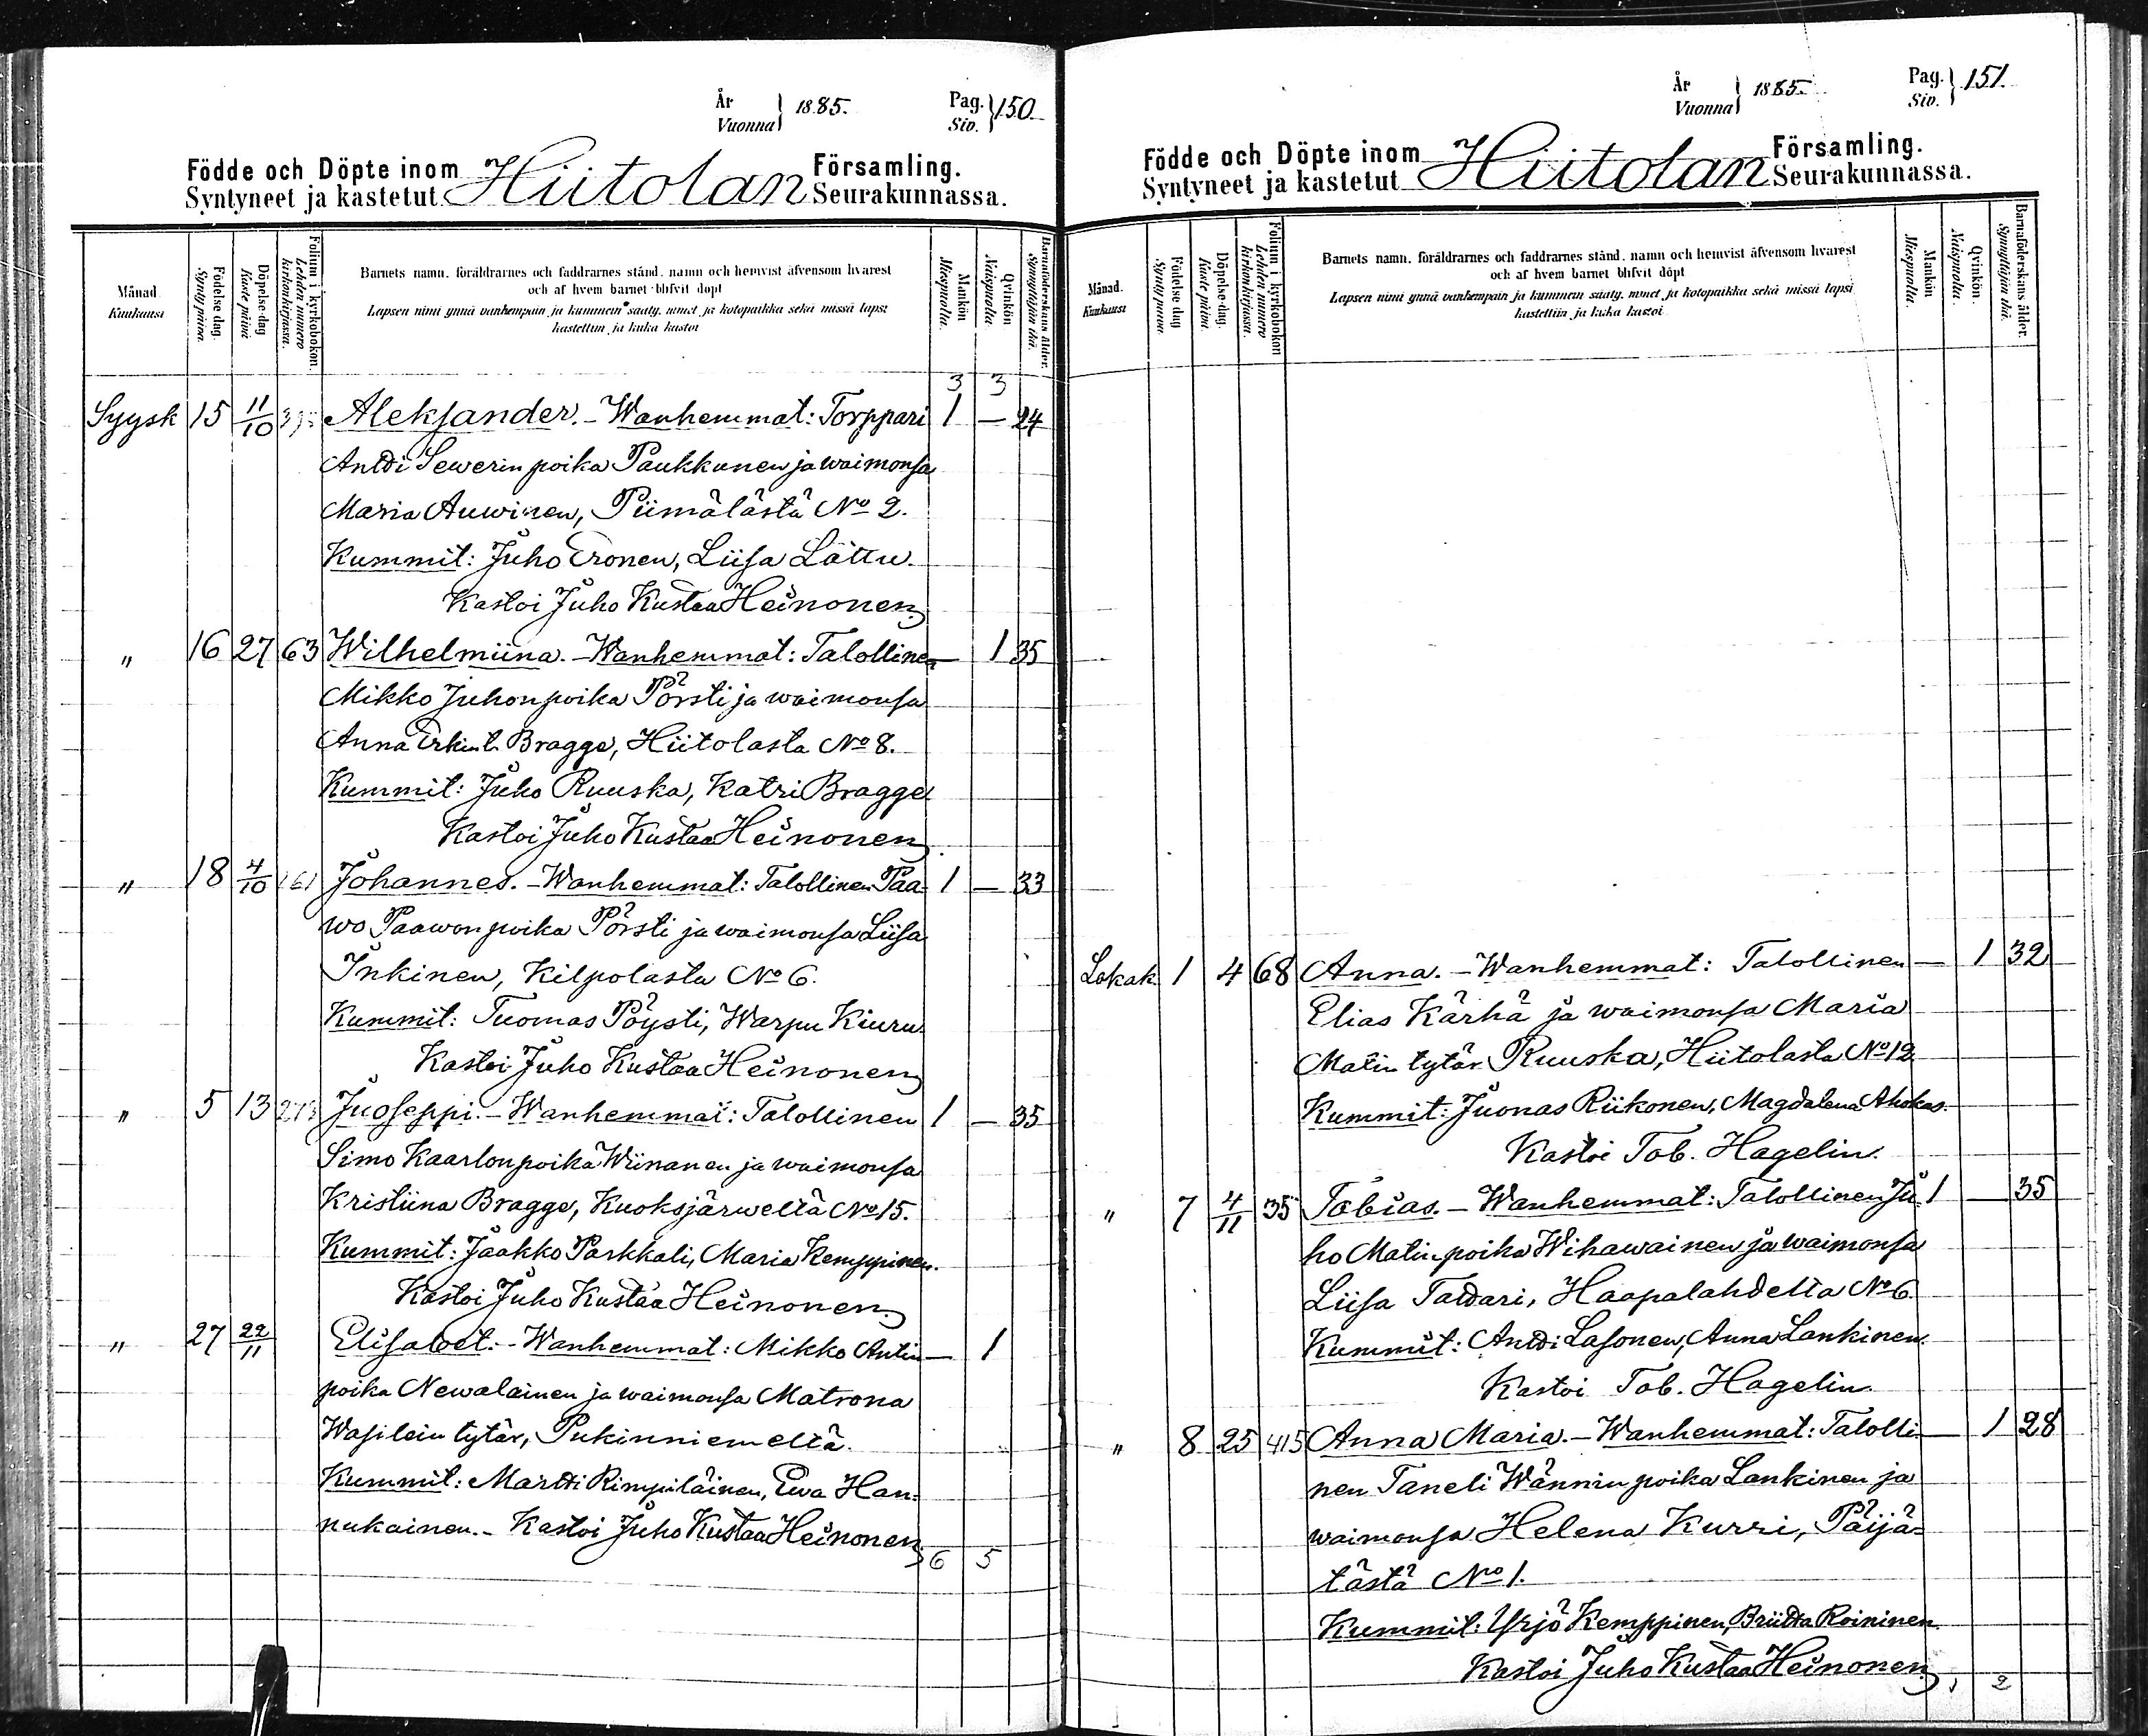 År
Vuonna } 1885.
Pag.
Siv. } 150
Födde och Döpte inom Hiitolan Församling.
Syntyneet ja kastetut Seurakunnassa.
Månad.
Kuukausi
Födelse dag.
Synty päivä.
Döpelse-dag
Kaste päivä
Folium i kyrkobokon
Lehden numero kirkonkirjassa.
Barnets namn, föräldrarnes och faddrarnes stånd, namn och hemvist äfvensom hvarest
och af hvem barnet blifvit döpt
Lapsen nimi ynnä vanhempain ja kummein sääty, nimet ja kotopaikka sekä missä lapsi
kastettiin ja kuka kastoi
Mankön
Miespuolia.
Qvinkön
Naispuolia
Barnaföderskans ålder.
Synnyttäjän ikä.
3 3
Syysk 15 11/10 Aleksander. - Wanhemmat: Torppari 1 — 24
Antti Sewerin poika Paukkunen ja waimonsa
Maria Auwinen, Piimälästä No 2.
Kummit: Juho Eronen, Liisa Lättu.
Kastoi Juho Kustaa Heinonen
" 16 27 63 Wilhelmiina. - Wanhemmat: Talollinen — 1 35
Mikko Juhonpoika Pörsti ja waimonsa
Anna Erkin t. Bragge, Hiitolasta No 8.
Kummit: Juho Ruuska, Katri Bragge
Kastoi Juho Kustaa Heinonen
" 18 4/10 161 Johannes. - Wanhemmat: Talollinen Paa 1 — 33
wo Paawonpoika Pörsti ja waimonsa Liisa
Inkinen, Kilpolasta No 6.
Kummit: Tuomas Pöysti, Warpu Kiuru
Kastoi Juho Kustaa Heinonen
" 5 13 Juoseppi. - Wanhemmat: Talollinen 1 — 35
Simo Kaarlonpoika Wiinanen ja waimonsa
Kristiina Bragge, Kuoksjärweltä No 15.
Kummit: Jaakko Parkkali, Maria Kemppinen.
Kastoi Juho Kustaa Heinonen
" 27 22/11 Elisabet. - Wanhemmat: Mikko Antin — 1
poika Newalainen ja waimonsa Matrona
Wasilein tytär, Pukinniemeltä.
Kummit: Martti Rimpiläinen, Ewa Han=
nukainen. - Kastoi Juho Kustaa Heinonen
6 5
År
Vuonna } 1885.
Pag.
Siv. } 151.
Födde och Döpte inom Hiitolan Församling.
Syntyneet ja kastetut Seurakunnassa.
Månad.
Kuukausi
Födelse dag
Synty päivä
Döpelse-dag.
Kaste päivä.
Folium i kyrkobokon
Lehden numero kirkonkirjassa.
Barnets namn, föräldrarnes och faddrarnes stånd, namn och hemvist äfvensom hvarest
och af hvem barnet blifvit döpt
Lapsen nimi ynnä vanhempain ja kummein sääty, nimet ja kotopaikka sekä missä lapsi
kastettiin ja kuka kastoi
Mankön
Miespuolia.
Qvinkön.
Naispuolia.
Barnaföderskans ålder.
Synnyttäjän ikä.
Lokak 1 4 68 Anna. - Wanhemmat: Talollinen — 1 32
Elias Kärhä ja waimonsa Maria
Matin tytär Ruuska, Hiitolasta No 12
Kummit: Juonas Riikonen, Magdalena Ahokas.
Kastoi Tob. Hagelin.
" 7 4/11 35 Tobias. - Wanhemmat: Talollinen Ju 1 — 35
ho Matinpoika Wihawainen ja waimonsa
Liisa Tattari, Haapalahdelta No 6.
Kummit: Antti Lasonen, Anna Lankinen.
Kastoi Tob. Hagelin
" 8 25 415 Anna Maria. - Wanhemmat: Talolli — 1 28
nen Taneli Wännin poika Lankinen ja
waimonsa Helena Kurri, Päijä=
tästä No 1.
Kummit: Yrjö Kemppinen, Briitta Roininen.
Kastoi Juho Kustaa Heinonen
1 2